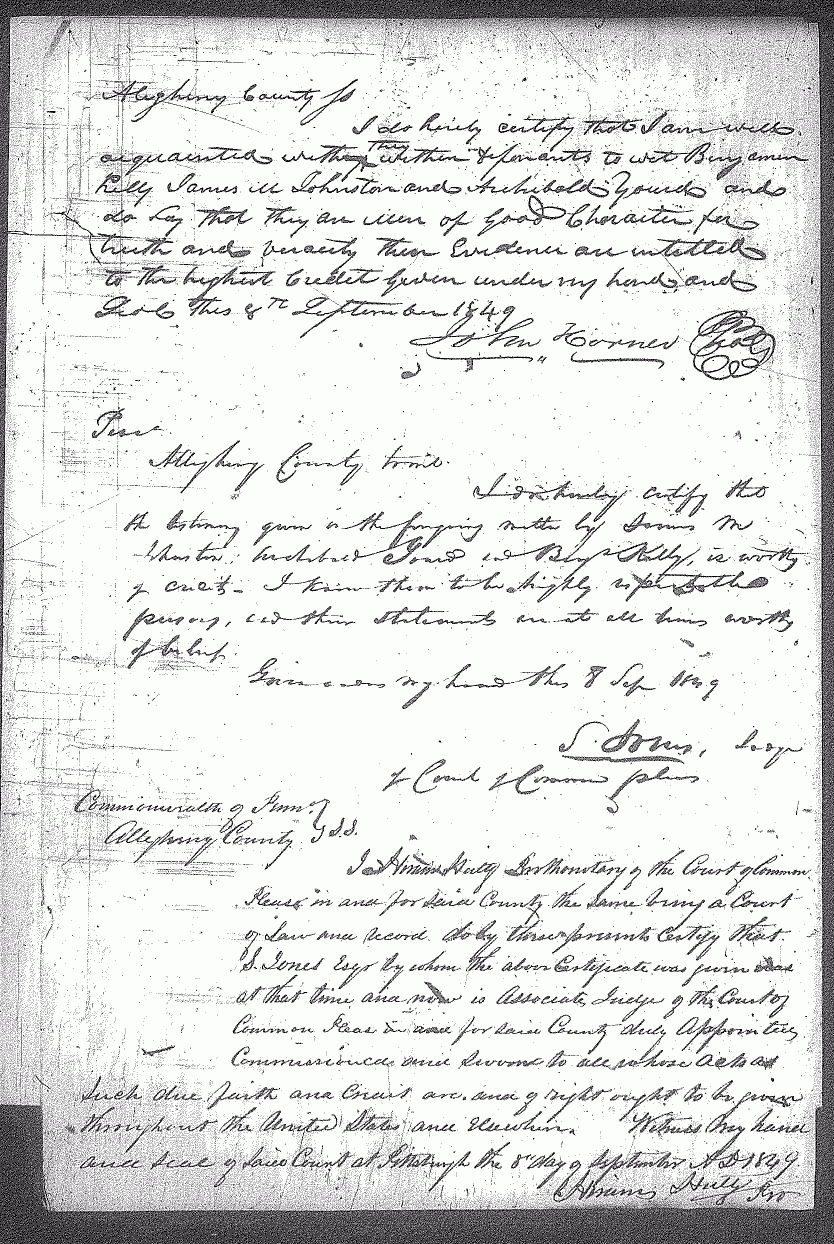 Alegheny County Ss
I do hereby certify that I am well
acquainted with the within deponants to wit Benjamin
Kelly James M Johnston and Archibald Yourd and
do say that they are men of Good Character for
truth and veracity their Evidence are intitled
to the highest Credit Given under my hand and
Seal this 8th September 1849
John Horner
Penna
Allegheny County
I do hereby certify that
the testimony given in the foregoing matter by James M
Johnston, Archibald Yourd and Benjn Kelly, is worthy
of credit - I know them to be highly respectable
persons, and their statements are at all times worthy
of belief.
Given under my hand this 8 Sep 1849
S. Jones, Judge
of Court of Common pleas
Commonwealth of Penna
Allegheny County S.S.
I Hiram Hultz Prothonotary of the Court of Common
Pleas in and for said County the same being a Court
of Law and record do by these presents Certify that
S. Jones Esqr by whom the above Certificate was given was
at that time and now is Associate Judge of the Court of
Common Pleas in and for said County duly Appointed
Commissioned and Sworn to all whose acts as
such due faith and Credit are and of right ought to be given
throughout the United States and Elsewhere. Witness my hand
and seal of said Court at Pittsburgh the 8th day of September AD 1849
Hiram Hultz Pro